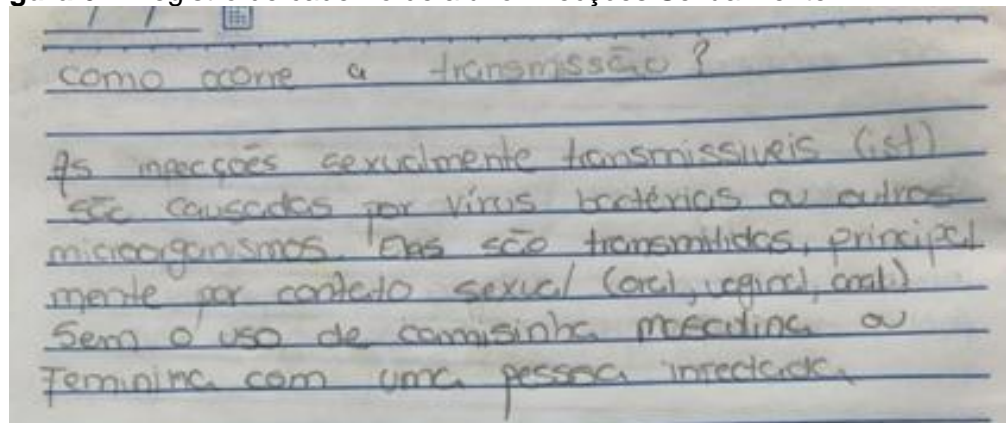 como ocorre a transmissão?
As infecções sexualmente transmissiveis (ist)
são causadas por vírus bactérias ou outros
microorganismos. Elas são transmitidas, principal
mente por contato sexual (oral, vaginal, anal.)
Sem o uso de camisinha masculina ou
Feminina com uma pessoa infectada.